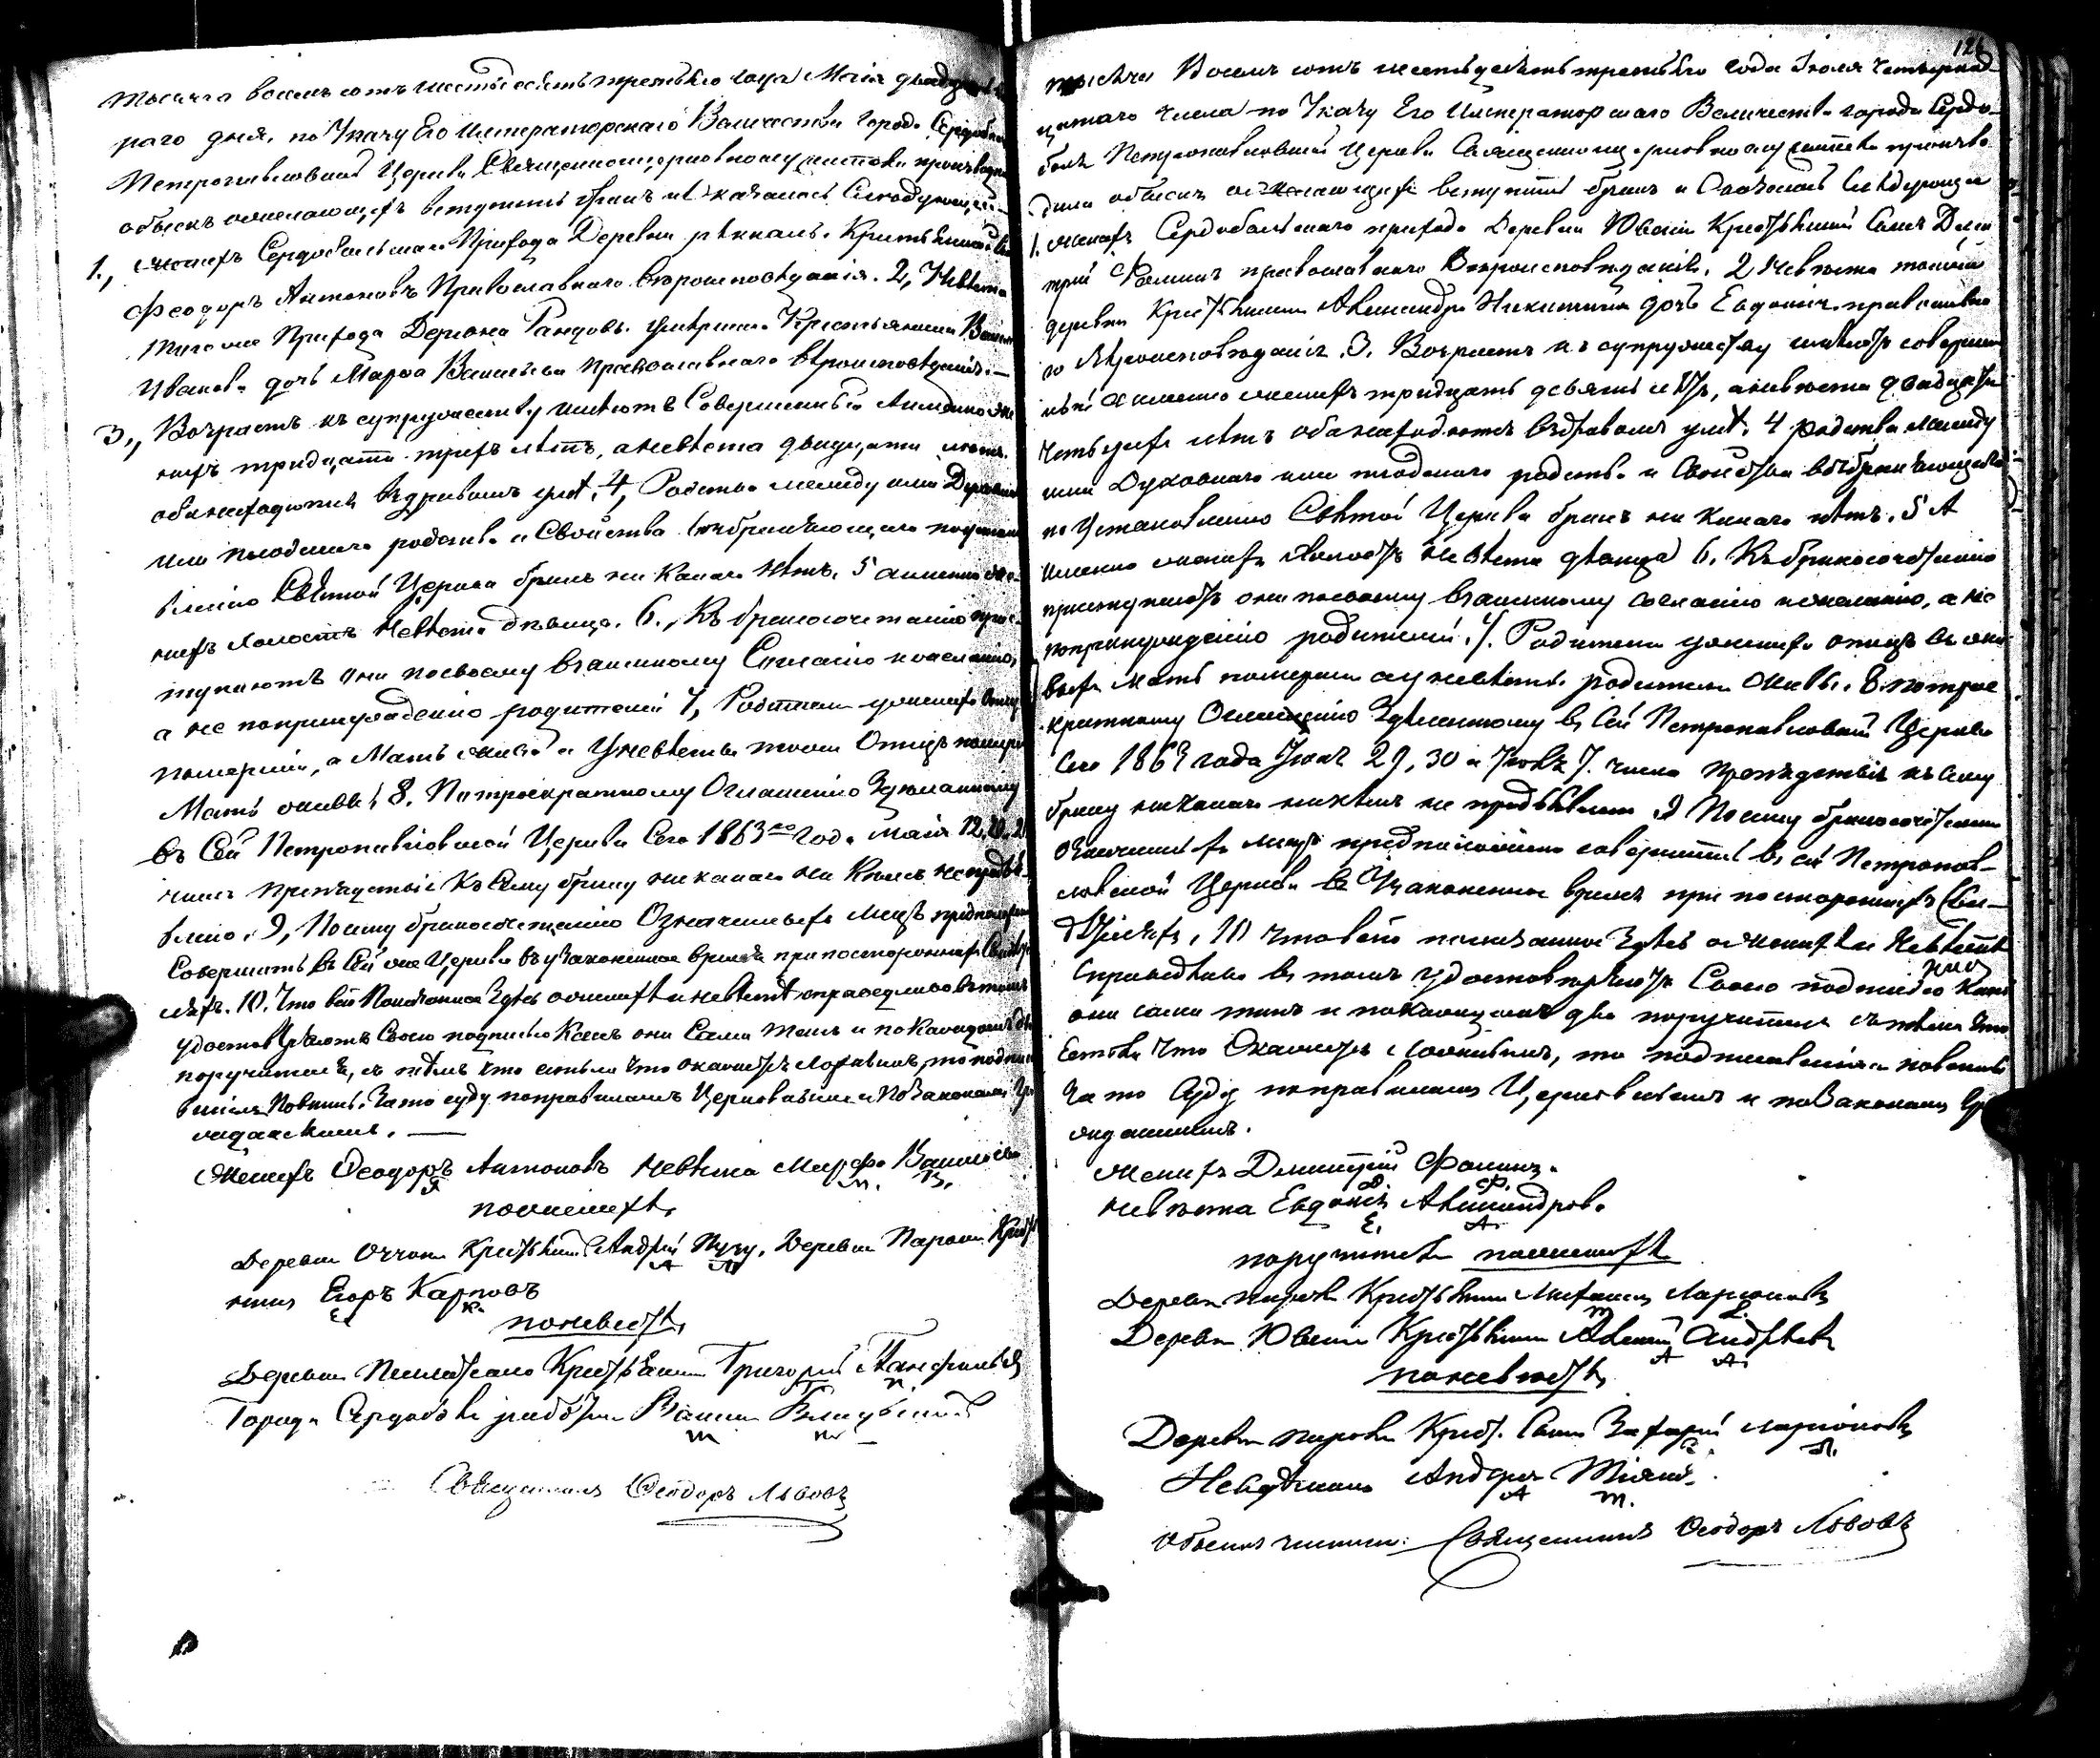 тысяча восемь сотъ шестьдесять третьяго года Маія двадцать
раго дня, по Указу Его Императорскаго Величества города Сердоболя
Петропавловской Церкви Священноцерковнослужители производили
обыскъ о желающихъ вступить бракъ и оказалось слѣдующее
1., Женихъ Сердобольскаго Прихода Деревни Крестьянской
Феодоръ Антоновъ Православнаго вѣроисповѣданія. 2, Невѣста
Прихода Деревни Крестьянина
Иванова дочь Марфа Васильева православнаго вѣроисповѣданія. —
3., Возрастъ къ супружеству имѣютъ совершенный а именно же
нихъ тридцати трехъ лѣтъ, а невѣста двадцати лѣтъ.
оба находятся въ здравомъ умѣ. 4, Родства между ими Духовнаго
или плотскаго родства и свойства возбраняющаго по установ
влению Святой Церкви бракъ ни какаго нѣтъ. 5 а именно же-
нихъ холостъ невѣста дѣвица. 6., Къ бракосочетанію прис-
тупаютъ они по своему взаимному согласію и желанію,
а не по принужденію родителей 7, Родители у жениха отецъ
померши, а Мать жива и у невѣсты тоже Отецъ померъ
Мать жива. 8. По троекратному Оглашенію Здѣланному
въ Сей Петропавловской Церкви Сего 1863 го года маія 12, 20, 21
числъ препядствія къ Сему браку никакаго ни кѣмъ не предъя-
влено. 9, По сему бракосочетанію Означенныхъ лицъ предположено
Совершить въ Сей же Церкви въ узаконенное время при постороннихъ Свидѣте
ляхъ. 10. Что всё Показанное здѣсь о женихѣ и невѣстѣ справедливо въ томъ
удостовѣряютъ своею подписью какъ они Сами такъ и по каждомъ два
поручителя, съ тѣмъ что естьли что окажется ложнымъ, то подпи
савшіяся Повинны за то суду по правиламъ Церковнымъ и по Законамъ Гра
жданскимъ. —
Женихъ Феодоръ Антоновъ невѣста Марфа Васильева
по женихѣ,
Деревни Крестьянинъ Андрей Деревни Парола Кресть
янинъ Егоръ Карповъ
по невѣстѣ,
Деревни Крестьянинъ Григорій Панфиловъ
Города Сердоболя
Священникъ Феодоръ Львовъ
126
тысяча Восемь сотъ шестьдесять третьяго года Іюля четырнад-
цатаго числа по Указу Его Императорскаго Величества города Сердо-
боля Петропавловской Церкви Священноцерковнослужители произво-
дили обыскъ о желающихъ вступить бракъ и Оказалось Слѣдующее
1. женихъ Сердобольскаго прихода Деревни Крестьянскій Сынъ Дми
трій Фоминъ православнаго Вѣроисповѣданія. 2 Невѣста тойже
деревни Крестьянина Александра Никитина дочь Евдокія православна
го Вѣроисповѣданія. 3. Возрастъ къ супружеству имѣютъ соверше
нный а именно женихъ тридцать девять лѣтъ, а невѣста двадцати
четырехъ лѣтъ оба находятся въ здравомъ умѣ. 4 родства между
ими Духовнаго или плотскаго родства и Свойства возбраняющаго
по Установленію Святой Церкви бракъ ни какаго нѣтъ. 5 А
именно женихъ холостъ невѣста дѣвица 6. Къ бракосочетанію
приступаютъ они по своему взаимному согласію и желанію, а не
по принужденію родителей. 7. Родители у жениха отецъ въ жи
выхъ мать померши а у невѣсты родители живы. 8. по трое
кратному Оглашенію Здѣланному въ Сей Петропавловской Церкви
Сего 1863 года Іюня 29, 30 и Іюля 7. числа препядствія къ Сему
браку никакаго никѣмъ не предъявлено 9 По сему бракосочетаніе
означенныхъ лицъ предположено совершить въ сей Петропав-
ловской Церкви въ Узаконенное время при постороннихъ Сви-
дѣтеляхъ, 10 что всё показанное здѣсь о женихѣ и Невѣстѣ
Справедливо въ томъ удостовѣряютъ Своею подписью какъ
они сами такъ и по каждомъ два поручителя съ тѣмъ что
Естьли что Окажется ложнымъ, то подписавшіяся повинны
за то Суду по правиламъ Церковнымъ и по Законамъ Гра
жданскимъ.
Женихъ Дмитрій Фоминъ.
невѣста Евдокія Александрова
поручители по женихѣ
Деревни Крестьянинъ Ларионовъ
Деревни Крестьянинъ Алексѣй Андреевъ
по невѣстѣ,
Деревни Крест. Сынъ Захарій Ларіоновъ
Андрей
Обыскъ чинилъ: Священникъ Феодоръ Львовъ